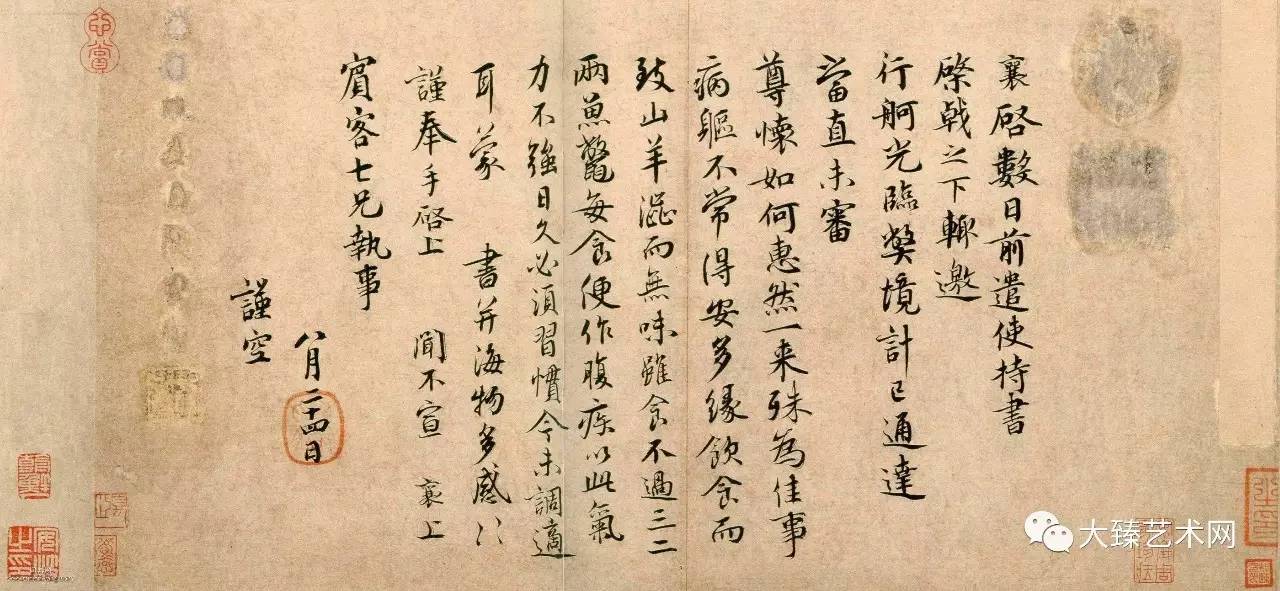 襄啓數日前遣使持書
棨戟之下輙邀
行舸光臨弊境計已通達
當直未審
尊懷如何惠然一来殊為佳事
病軀不常得安多緣飲食而
致山羊澁而無味雖食不過三二
兩魚鼈每食便作腹疾以此氣
力不強日久必須習慣今未調適
耳蒙 書并海物多感〻
謹奉手啓上 聞不宣 襄上
賓客七兄執事
八月二十四日
謹空
大臻艺术网